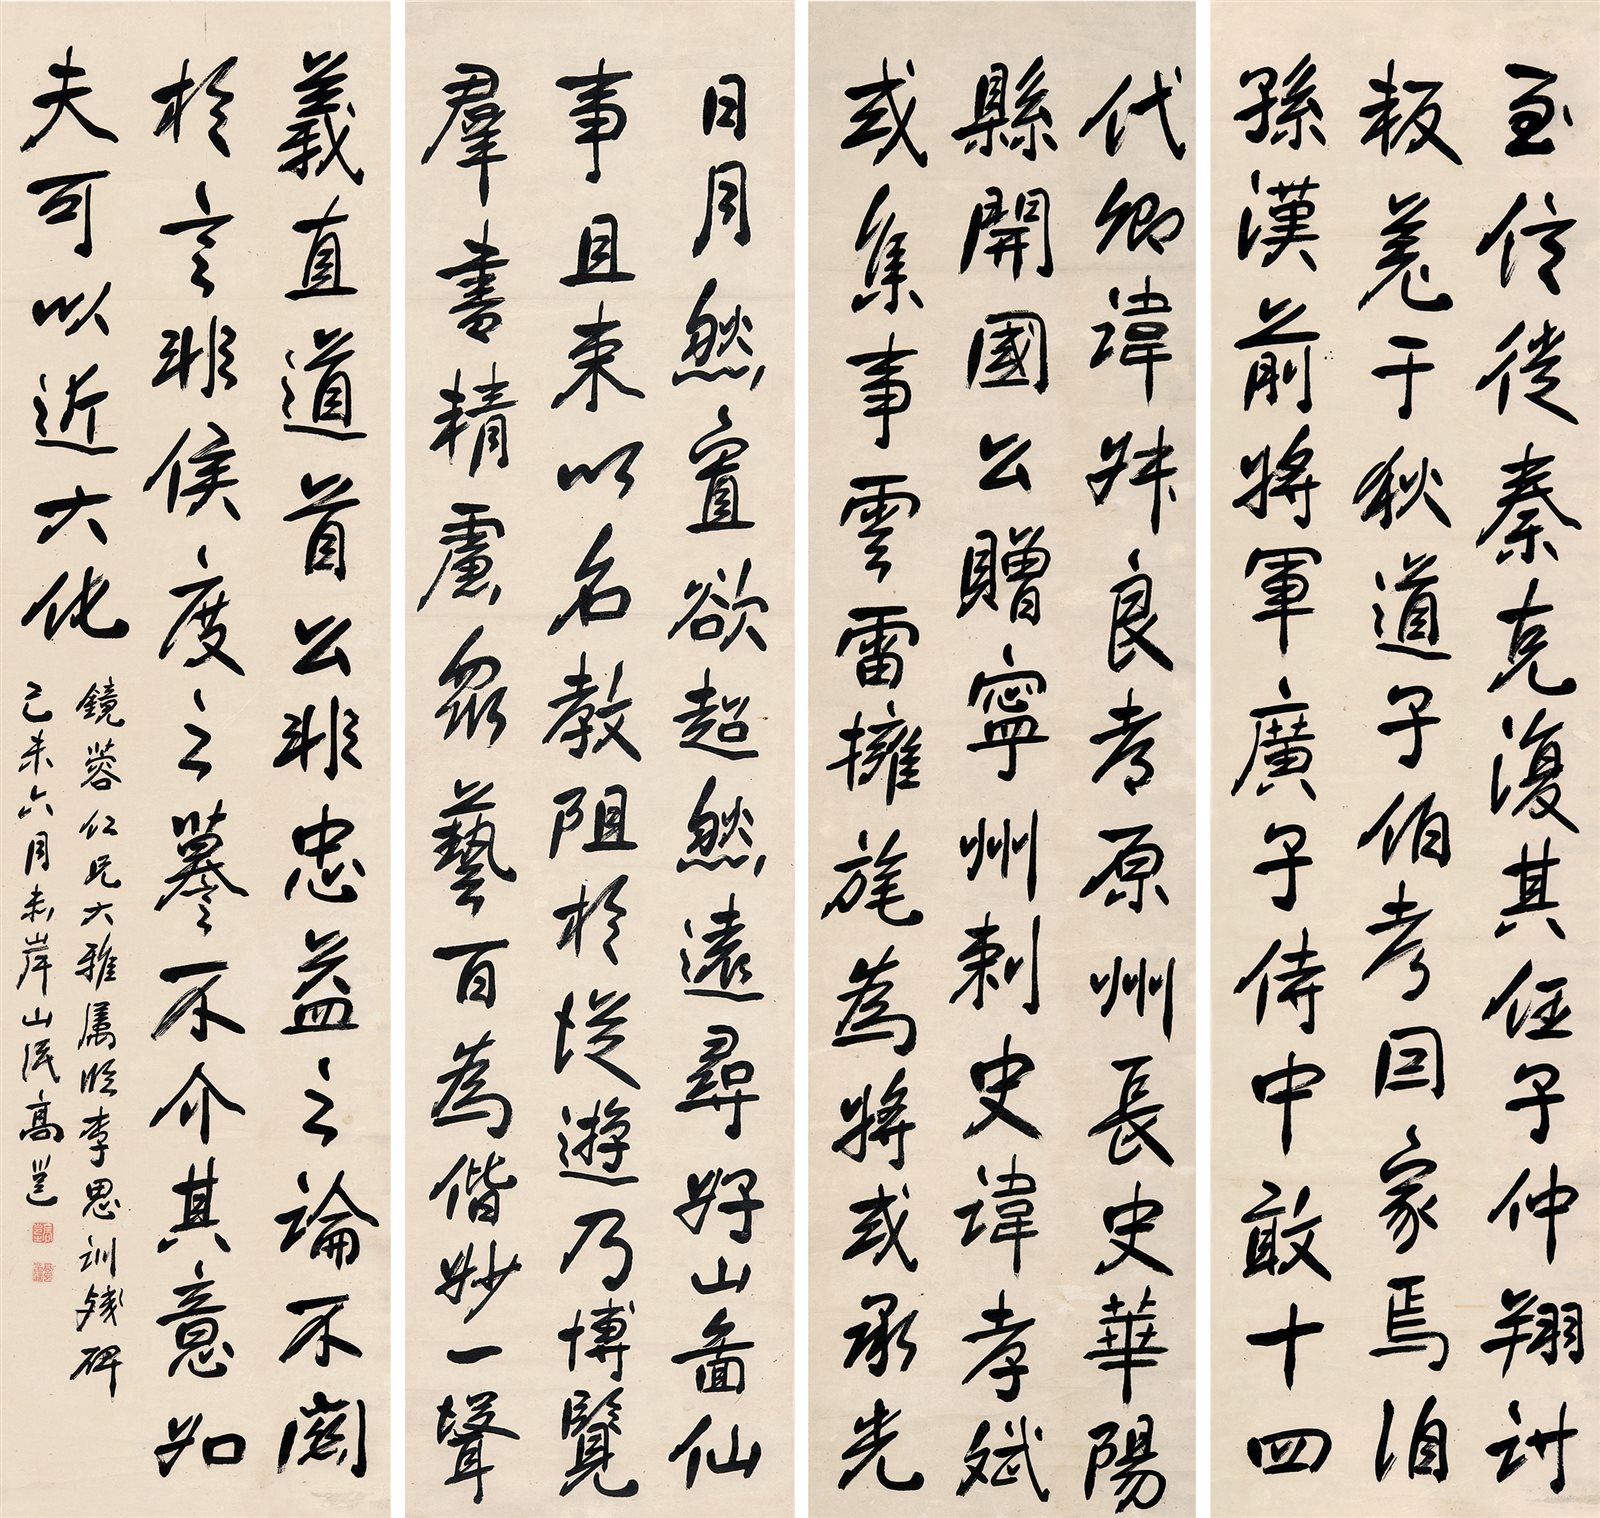 至信徙秦克復其任子仲翔討
叛羌于狄道子伯考因家焉洎
孫漢前將軍廣子侍中敢十四
代卿諱㧞良考原州長史華陽
縣開國公贈寧州刺史諱孝斌
或集事雲雷擁旄為將或承光
日月然窅欲超然遠尋好山啚仙
事且束以名教阻於從遊乃博覽
羣書精慮眾藝百為偕妙一聲
義直道首公非忠益之論不關
於言非侯度之謩不介其意如
夫可以近大化
鏡蓉仁兄大雅属臨李思訓殘碑
己未六月赤岸山民高邕